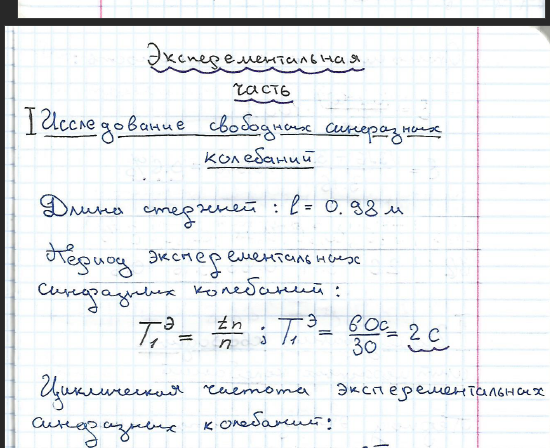 Эксперементальная
часть
I Исследование свободных синфазных
колебаний
Длина стержней : l = 0.98 м
Период эксперементальных
синфазных колебаний :
T₁ᴱ = tn/n ; T₁ᴱ = 60c/30 = 2 c
Циклическая частота эксперементальных
синфазных колебаний: